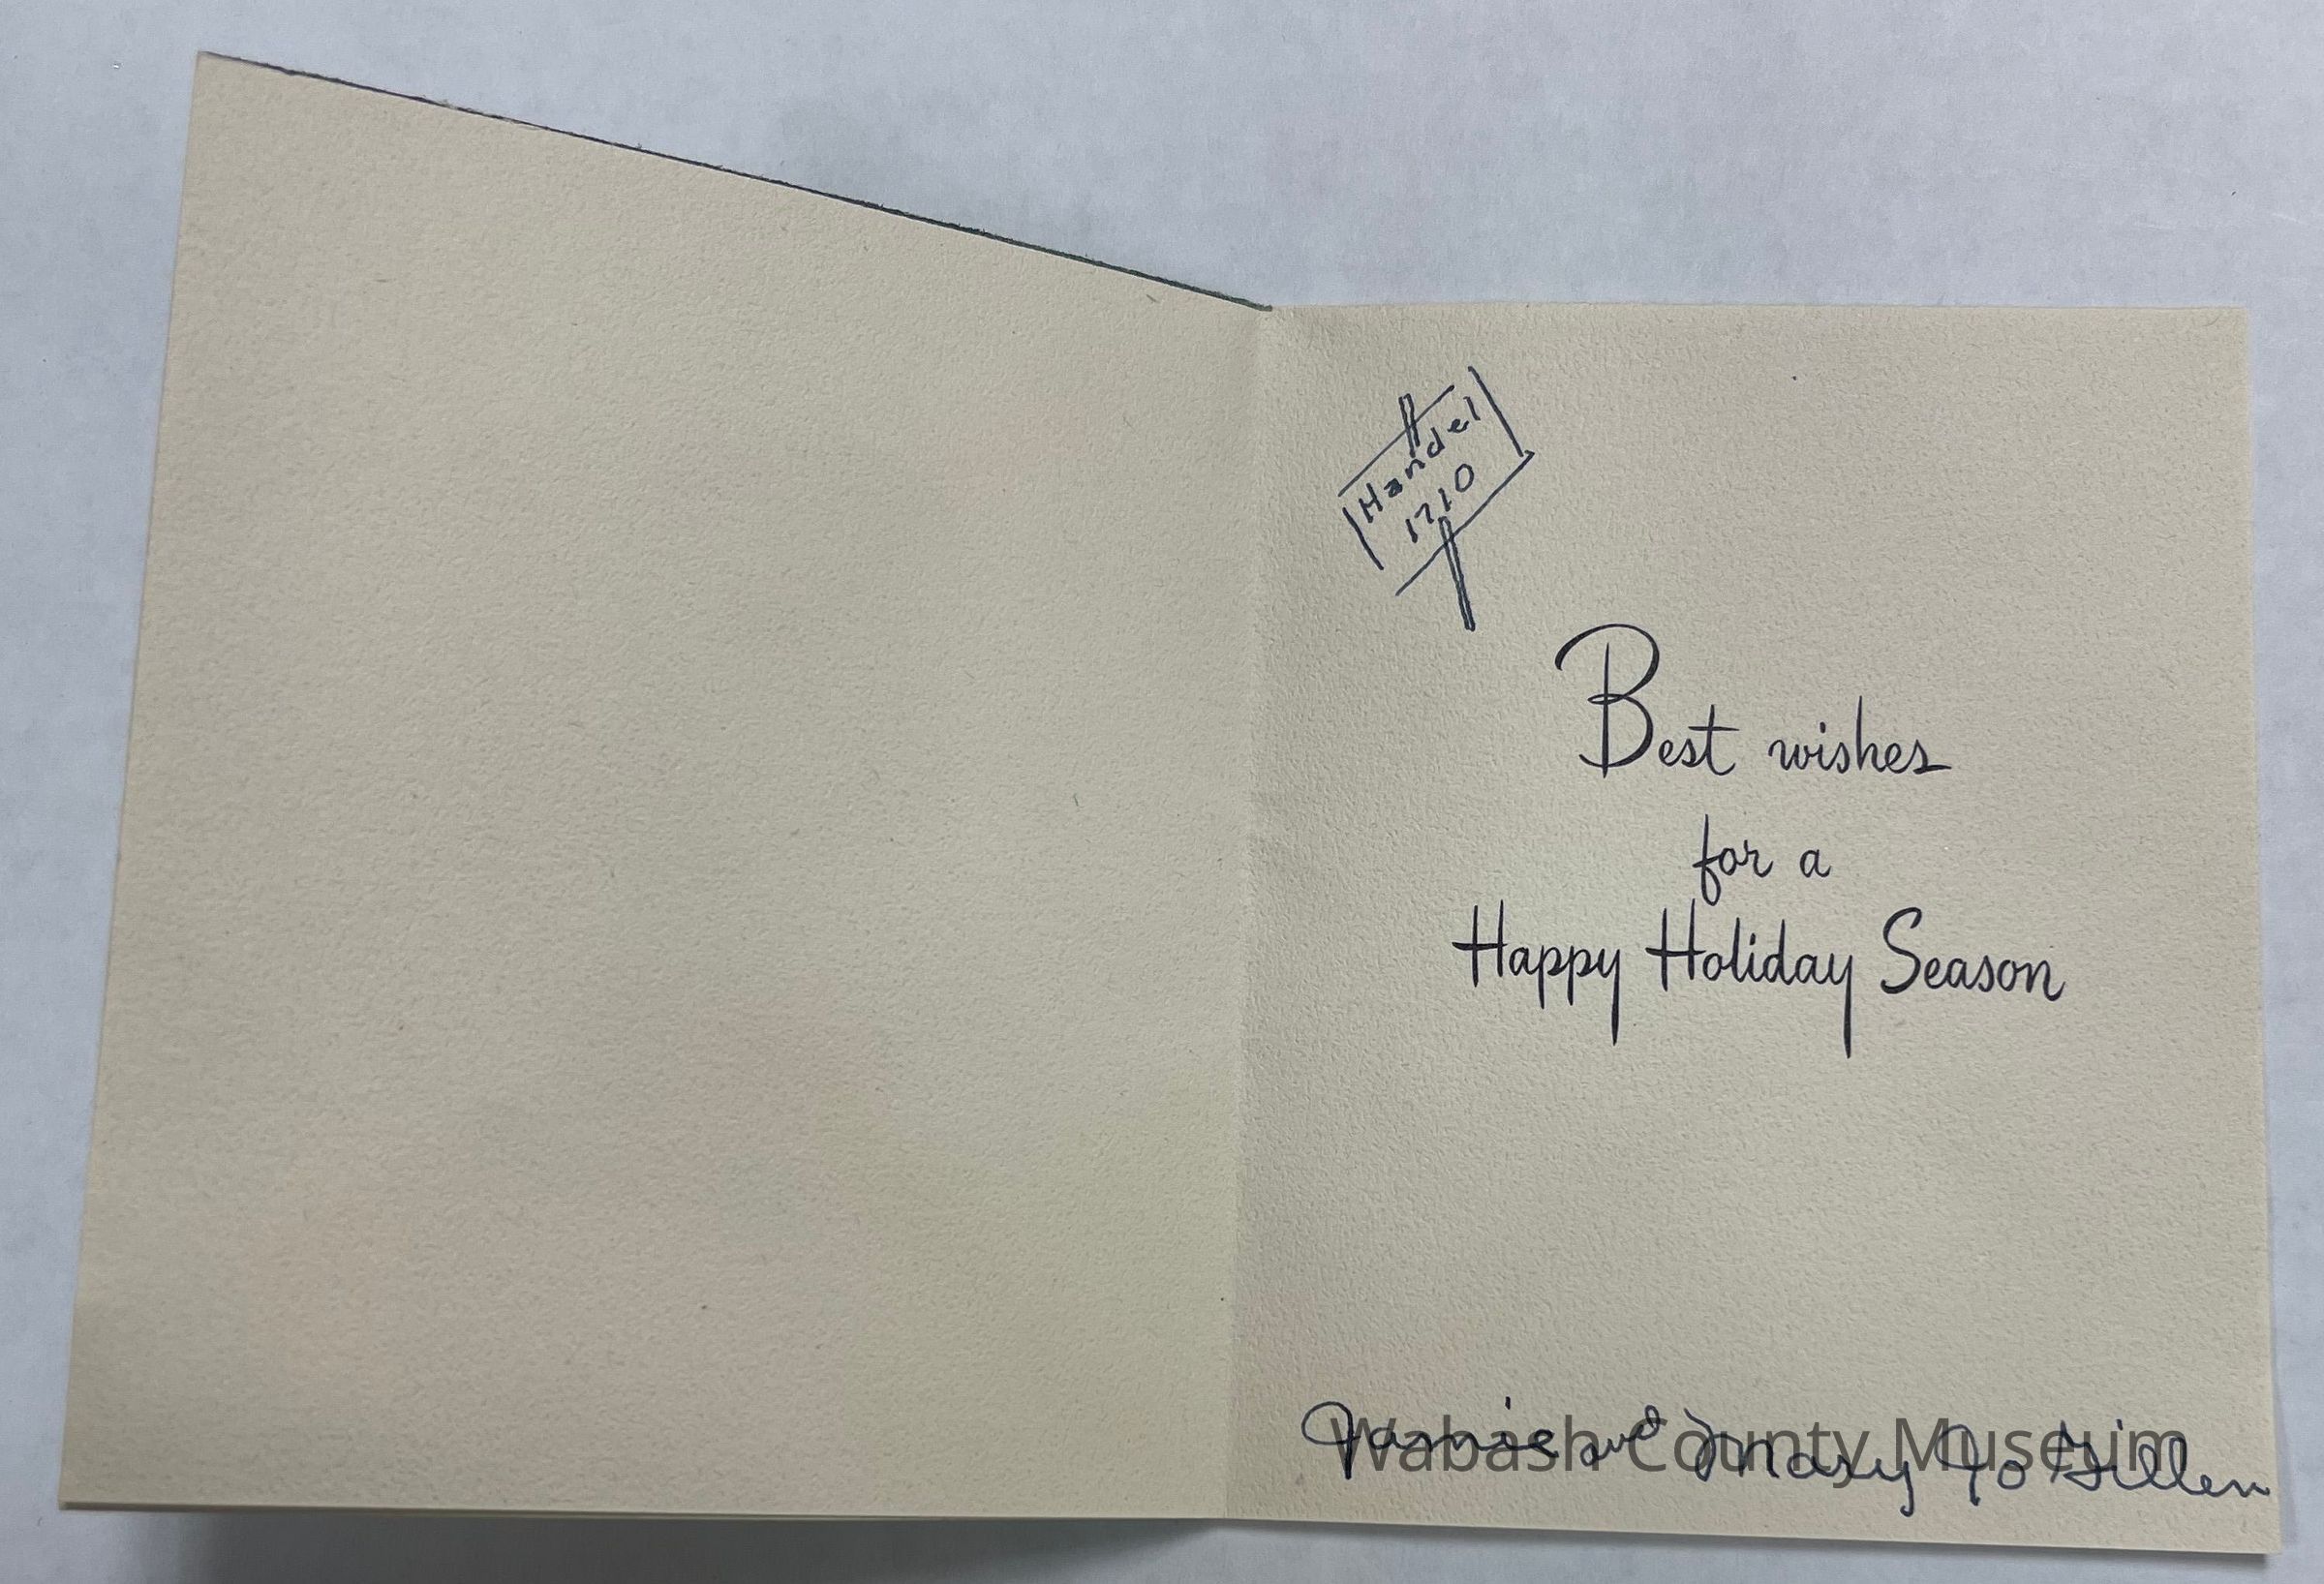 Handel
1710
Best wishes
for a
Happy Holiday Season
Jamie and Mary Jo Gillen
Wabash County Museum